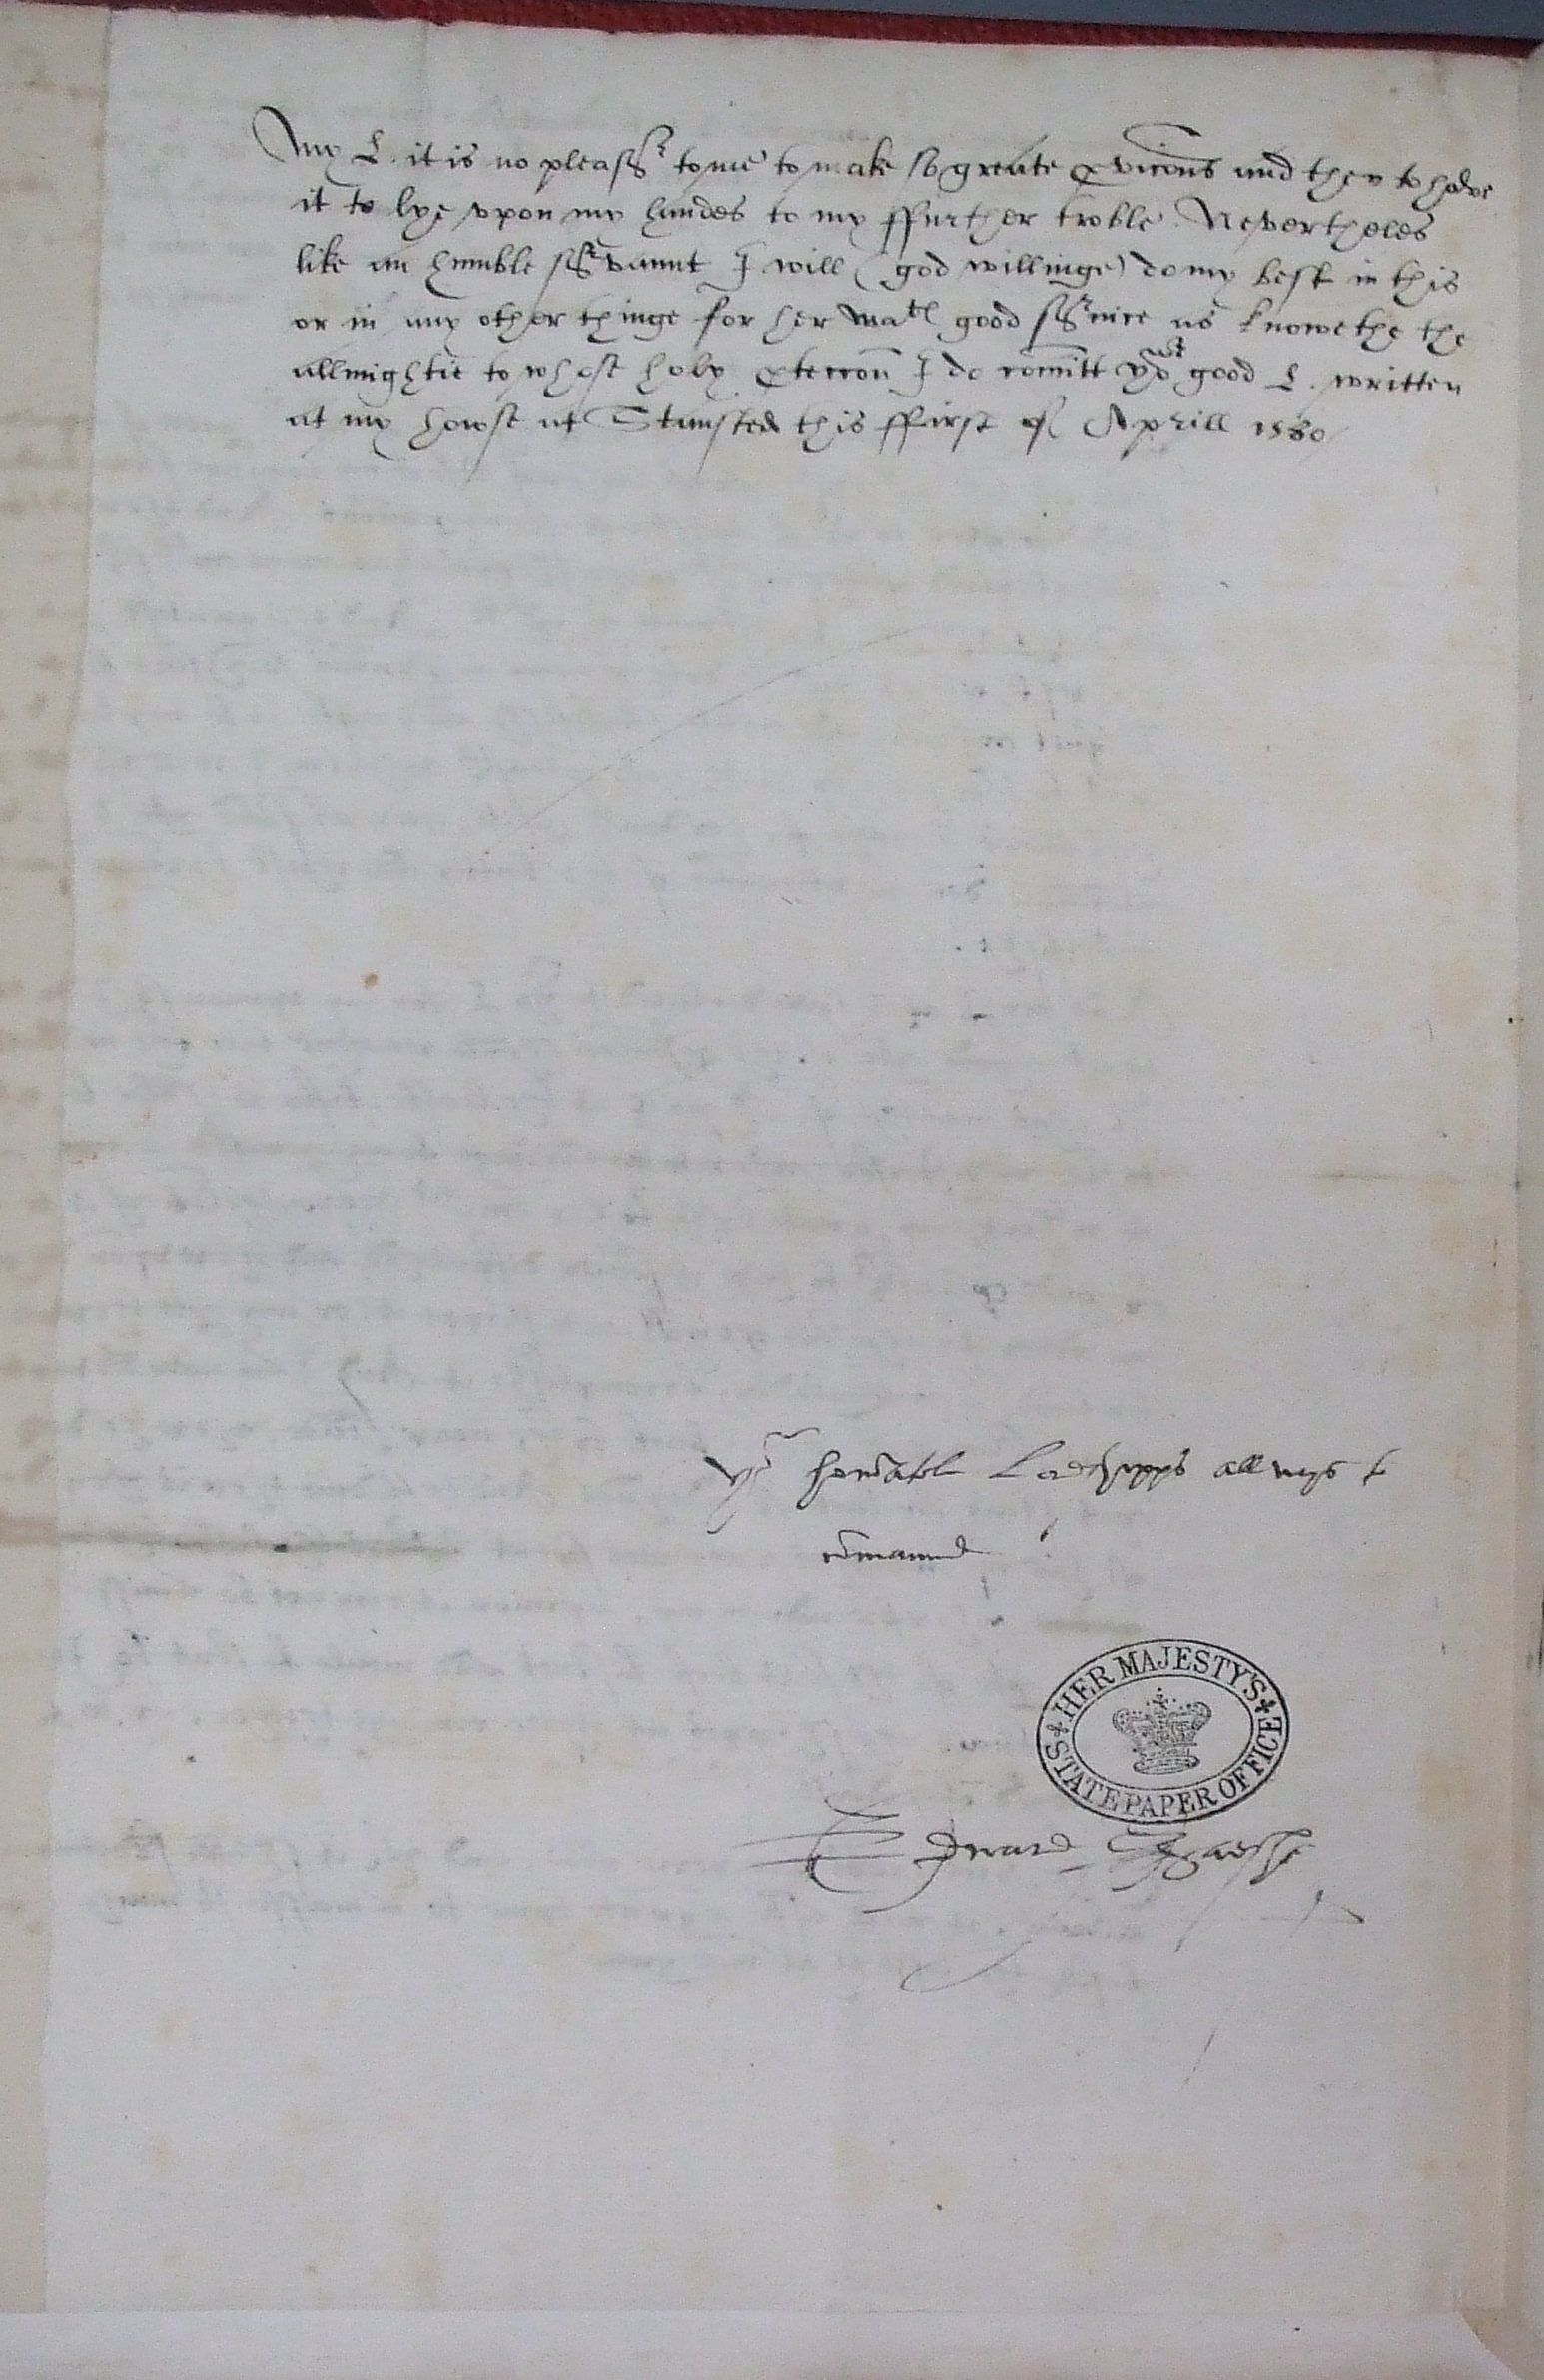 My L. it is no pleass^r to me to make so greate p̱vicon̄s and then to have
it to lye vpon my handes to my ffurther troble Nevertheles
like an humble ss^rvaunt I will (god willinge) do my best in this
or in any other thinge for her ma^tl good ss^rvice as knowethe the
allmightie to whose holy p̱teccon̄ I do com̄itt yo^r good L. written
at my howse at Stansted this ffirst of Aprill 1580
yo^r honorabl Lordshypps allways to
com̄aund
HER MAJESTY'S
STATE PAPER OFFICE
Edward